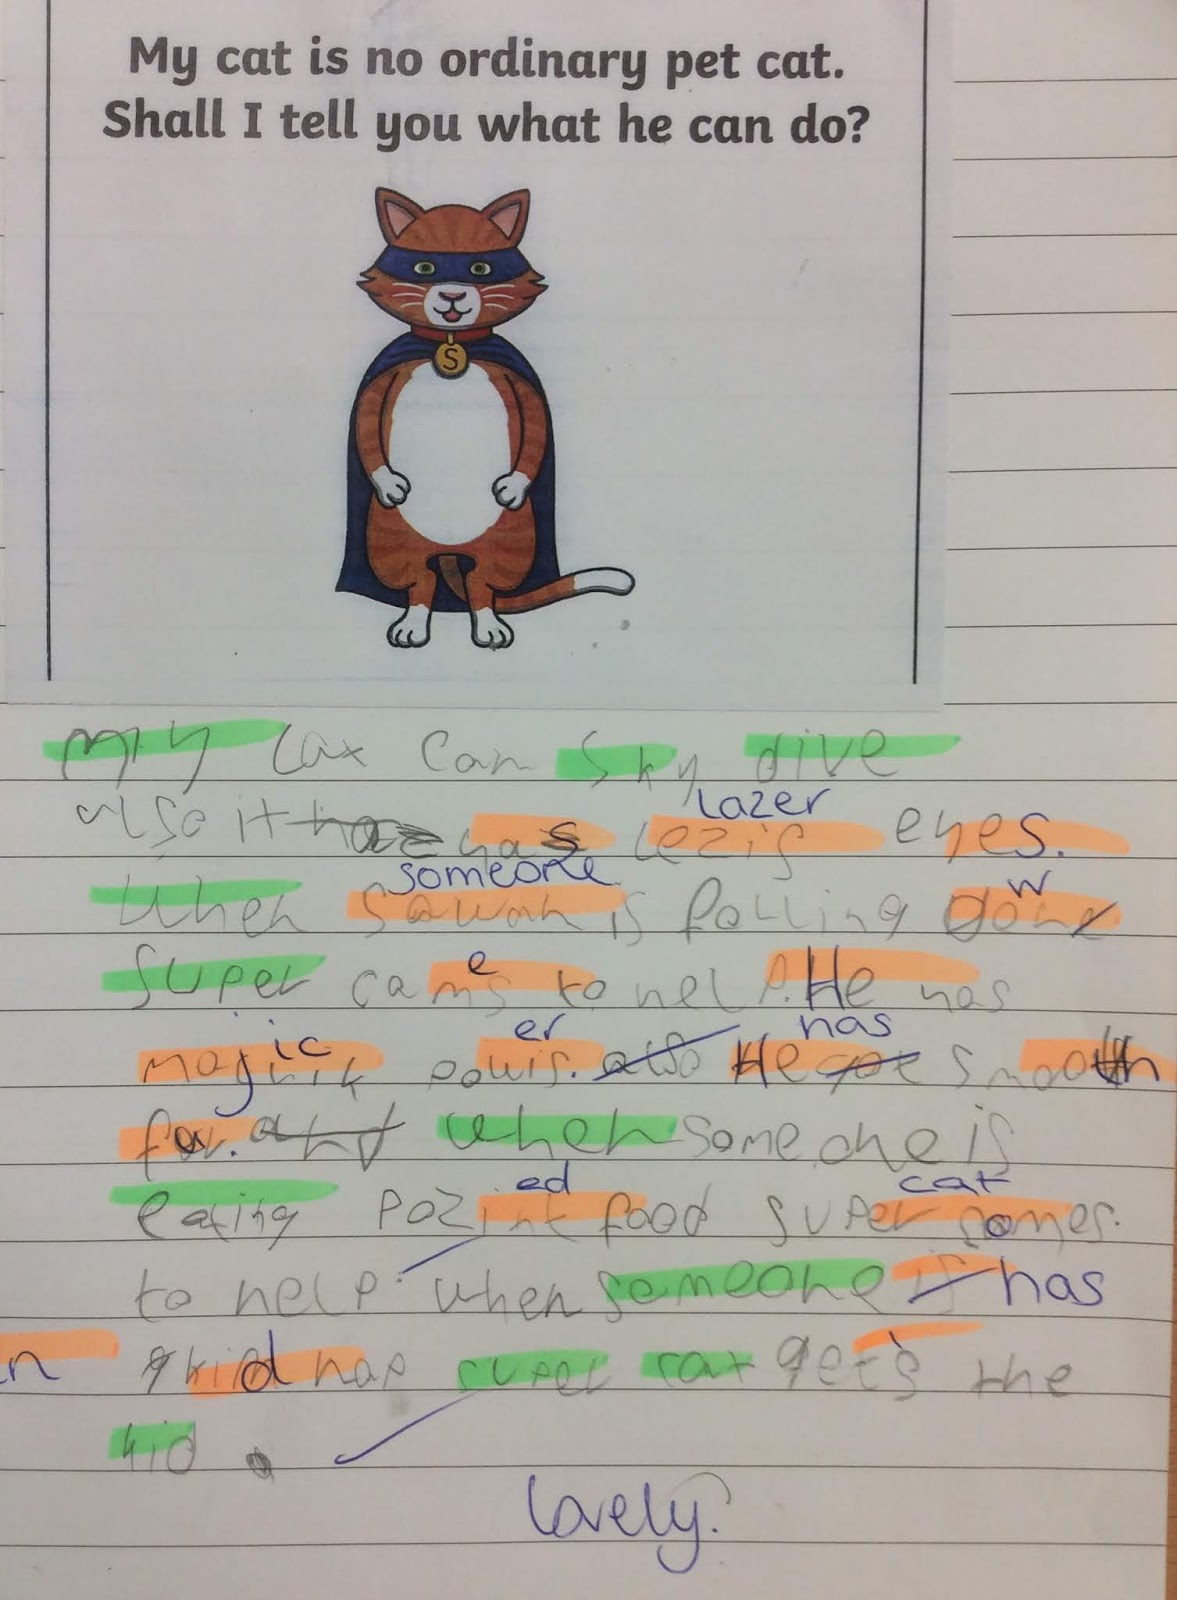 My cat is no ordinary pet cat.
Shall I tell you what he can do?
S
My cat can Sky dive
lazer
also it has eyes.
someone w
When is falling
e
Super cams to help. He has
ic er has
powis. also He got smooth
for. and when someone is
ed cat
eating food super comes
to help. when someone is has
n kid nap super cat gets the
kid.
Lovely.